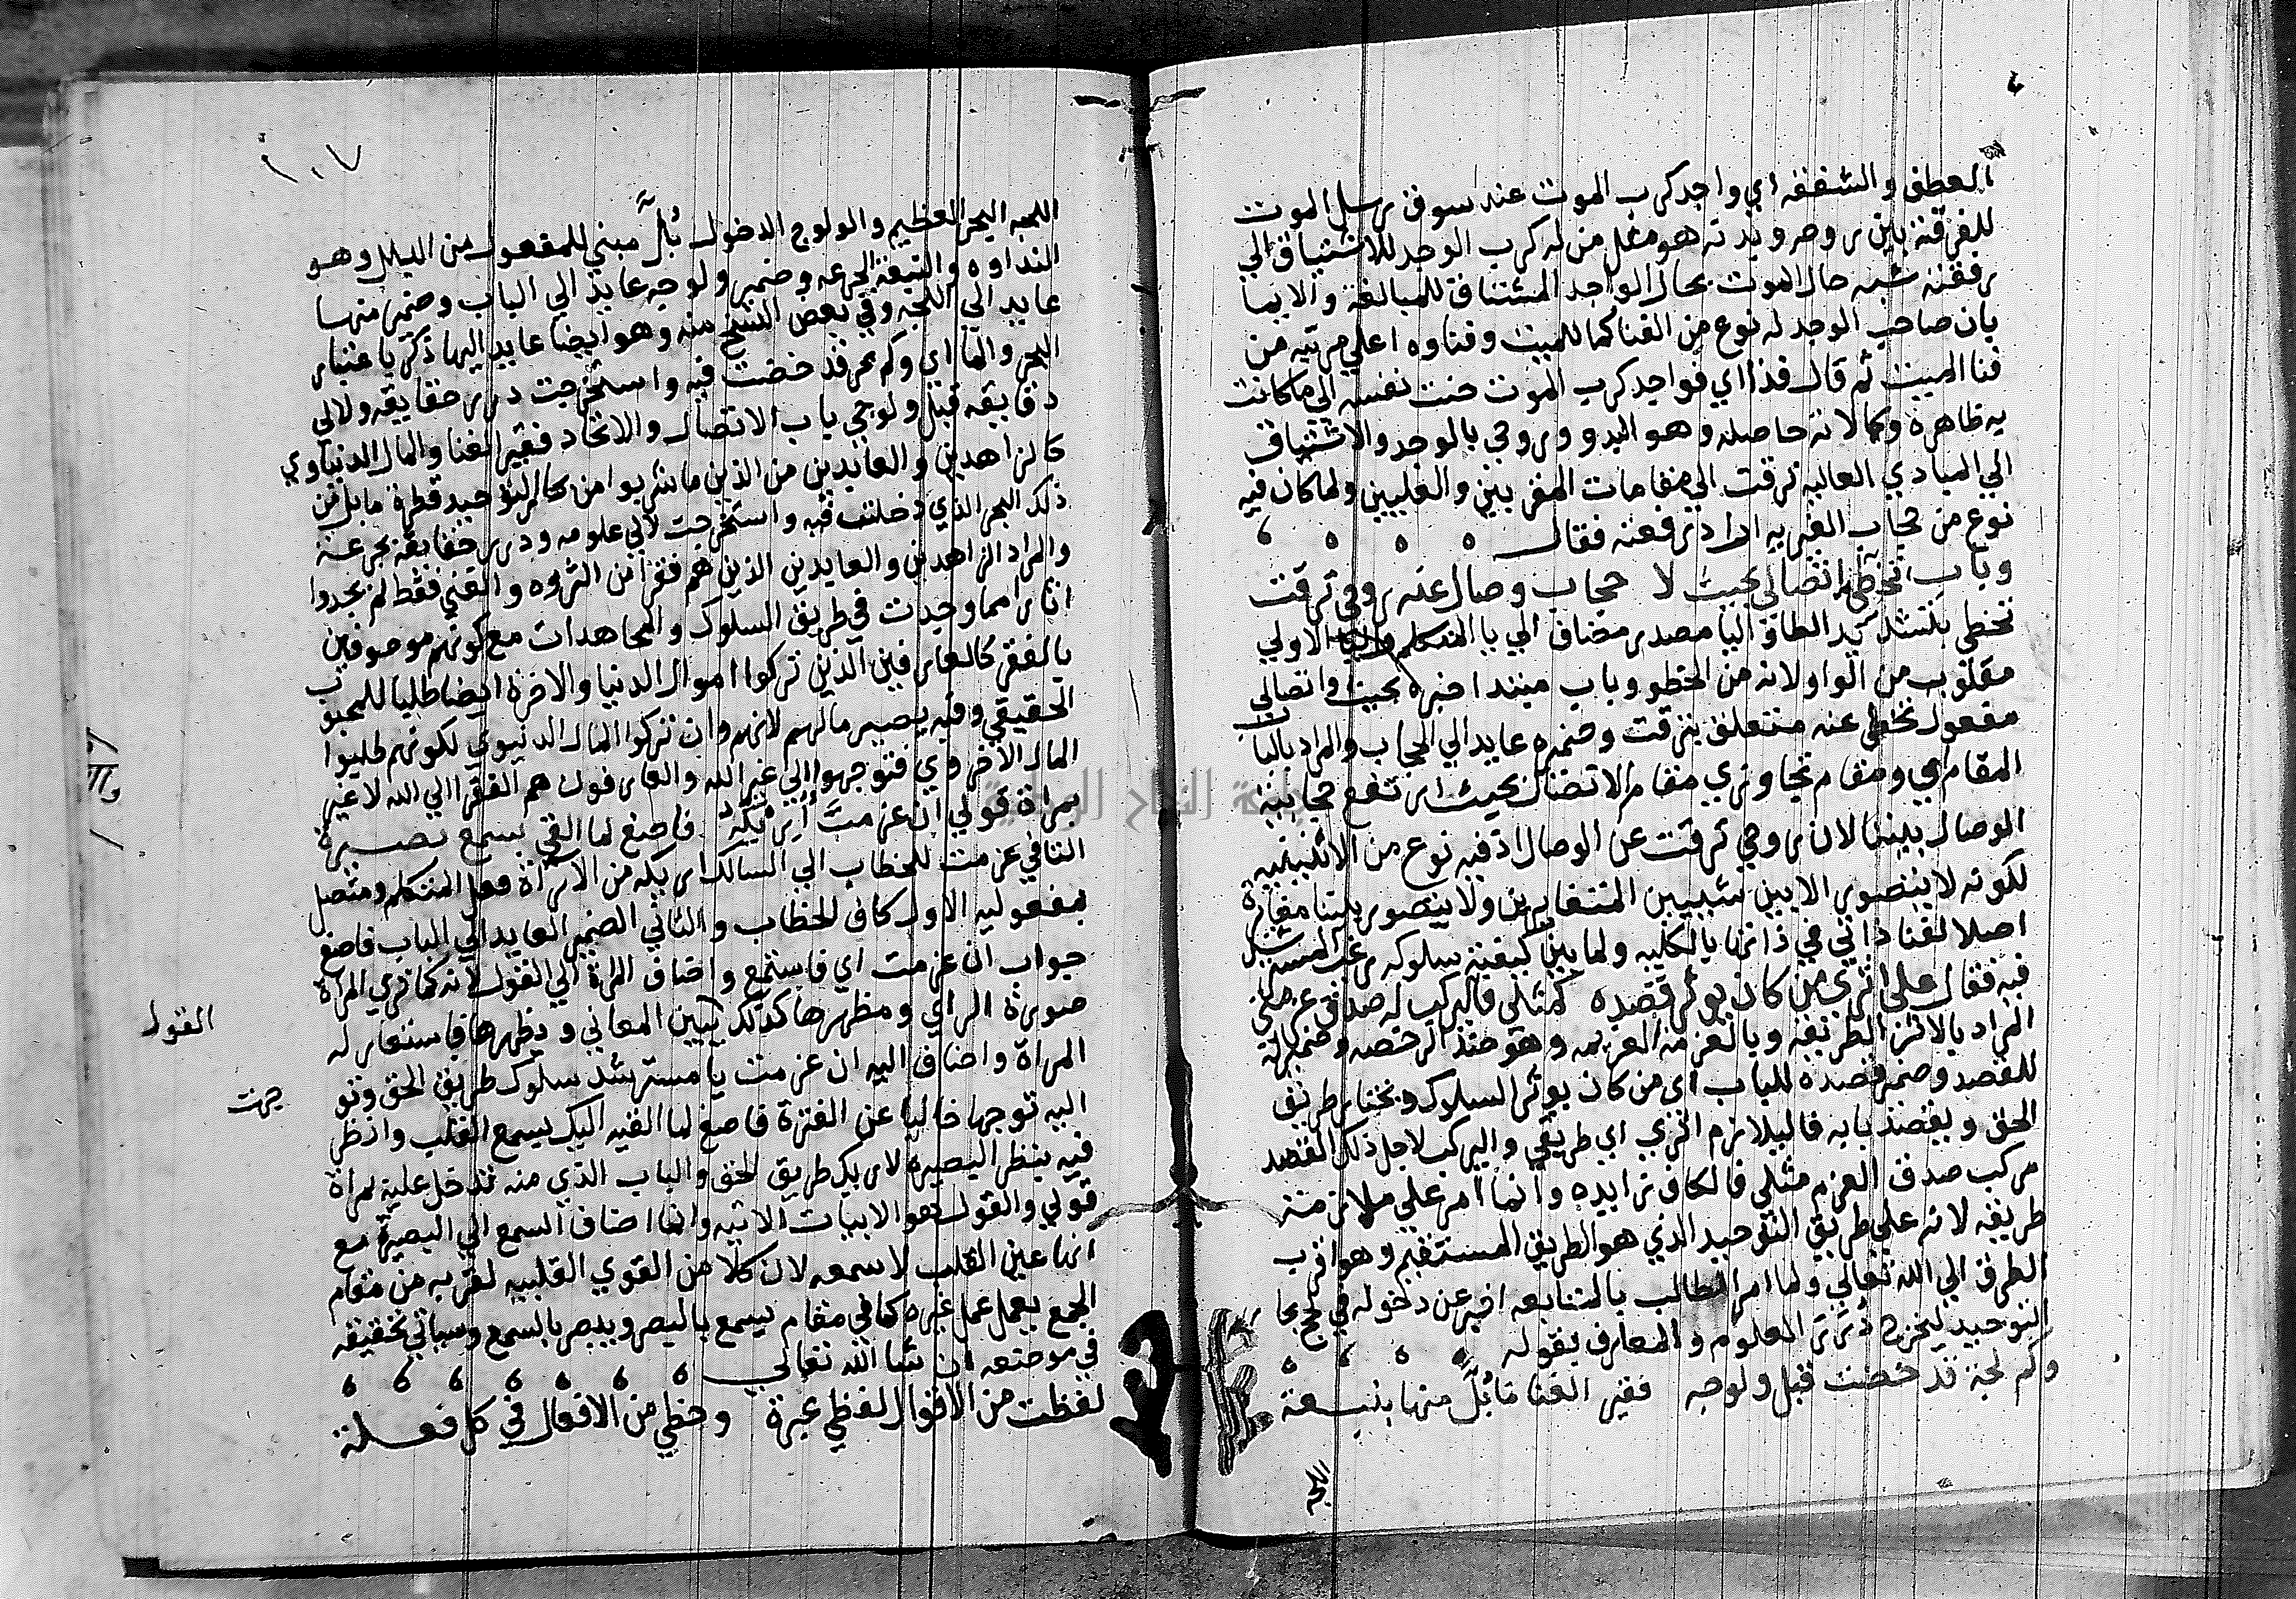 العطف والشفقه اي واجد كرب الموت عند سوق رسل الموت
للفرقة بين روحه وبدنه هو مثل من له كرب الوجد للاشتياق الي
رفقته شبه حال الموت بحال الواجد المشتاق للمبالغة والايما
بان صاحب الوجد له نوع من الفنا كما للميت وفناوه اعلي مرتبه من
فنا الميت ثم قال فذا اي فواجد كرب الموت حنت نفسه الي ما كانت
به ظاهرة وكمالاته حاصله وهو البدو وروحي بالوجد والاشتياق
الي المبادي العاليه ترقت الي مقامات المقربين والعليين ولما كان فيه
نوع من حجاب الغيريه اراد رفعته فقال
وباب تخطي اتصالي بحيث لا حجاب وصال عنه روحي ترقت
تخطي بتشديد الطا واليا مصدر مضاف الي يا المتكلم واليا الاولي
مقلوب من الواو لانه من الخطو وباب مبتدا خبره بحيث واتصالي
مفعول تخطي عنه متعلق بترقت وضميره عايد الي الحجاب والمراد بالباب
المقام اي ومقام تجاوزي مقام الاتصال بحيث ارتفع حجابية
الوصال بيننا لان روحي ترقت عن الوصال اذ فيه نوع من الاثنينيه
لكونه لا يتصور الا بين شيين المتغايرين ولا يتصور بيننا مغايرة
اصلا لفنا ذاتي في ذاتها بالكليه ولما بين كيفية سلوكه رغب المسترشد
فيه فقال علي اثري من كان يوثر قصده كمثلي فاليركب له صدق عزمتي
المراد بالاثر الطريقه وبالعزمه العزيمه وهو ضد الرخصه وضمير له
للقصد وضمير قصده للباب اي من كان يوثر السلوك ويختار طريق
الحق ويقصد بابه فاليلازم اثري اي طريقي واليركب لاجل ذلك القصد
مركب صدق العزم مثلي فالكاف زايده وانما امر علي ملازمة
طريقه لانه علي طريق التوحيد الذي هو الطريق المستقيم وهو اقرب
الطرق الي الله تعالي ولما امر الطالب بالمتابعه اخبر عن دخوله في لجج بحار
التوحيد ليخرج درر العلوم والمعارف بقوله
وكم لجة قد خضت قبل ولوجه فقير الغنا ما بُلَّ منها بنغبة
اللجه
١٠٧
اللجه البحر العظيم والولوج الدخول بُلَّ مبني للمفعول من البلل وهو
النداوه والنغبة الجرعه وضمير ولوجه عايد الي الباب وضمير منها
عايد الي اللجه وفي بعض النسخ منه وهو ايضا عايد اليها ذكر باعتبار
البحر والما اي وكم بحر قد خضت فيه واستخرجت درر حقايقه ولالي
دقايقه قبل ولوجي باب الاتصال والاتحاد فقير الغنا والمال الدنياوي
كالزاهدين والعابدين من الذين ما شربوا من بحار التوحيد قطرة ما بل من
ذلك البحر الذي دخلت فيه واستخرجت لالي علومه ودرر حقايقه بجرعة
والمراد الزاهدين والعابدين الذين هم فقرا من الثروه والغني فقط لم يجدوا
اثارا مما وجدت في طريق السلوك والمجاهدات مع كونهم موصوفين
بالفقر كالعارفين الذين تركوا اموال الدنيا والاخرة ايضا طلبا للمحبوب
الحقيقي وفيه يصير مالهم لانهم وان تركوا المال الدنيوي لكونهم طلبوا
المال الاخروي فتوجهوا الي غير الله والعارفون هم الفقرا الي الله لا غير
بمراة قولي ان عزمت اُريكه فاصغ لما القي بسمع بصيرة
التا في عزمت للخطاب الي السالك اريكه من الاراة فعل المتكلم ومتصل
بمفعوليه الاول كاف الخطاب والثاني الضمير العايد الي الباب فاصغ
جواب ان عزمت اي فاستمع واضاف المراة الي القول لانه كما تري المراة
صورة الراي ومظهرها كذلك يبين المعاني ويظهرها فاستعار له
القول
المراة واضاف اليه ان عزمت يا مسترشد سلوك طريق الحق وتو
جهت
اليه توجها خاليا عن الفترة فاصغ لما القيه اليك بسمع القلب وانظر
فيه بنظر البصيره لاريك طريق الحق والباب الذي منه تدخل عليه بمراة
قولي والقول هو الابيات الاتيه وانما اضاف السمع الي البصيرة مع
انها عين القلب لا سمعه لان كلا من القوي القلبيه لقربه من مقام
الجمع يعمل عمل غيره كما في مقام يسمع بالبصر ويبصر بالسمع وسياتي تحقيقه
في موضعه ان شا الله تعالي
لفظت من الاقوال لفظي عبرة وحظي من الافعال في كل فعلة